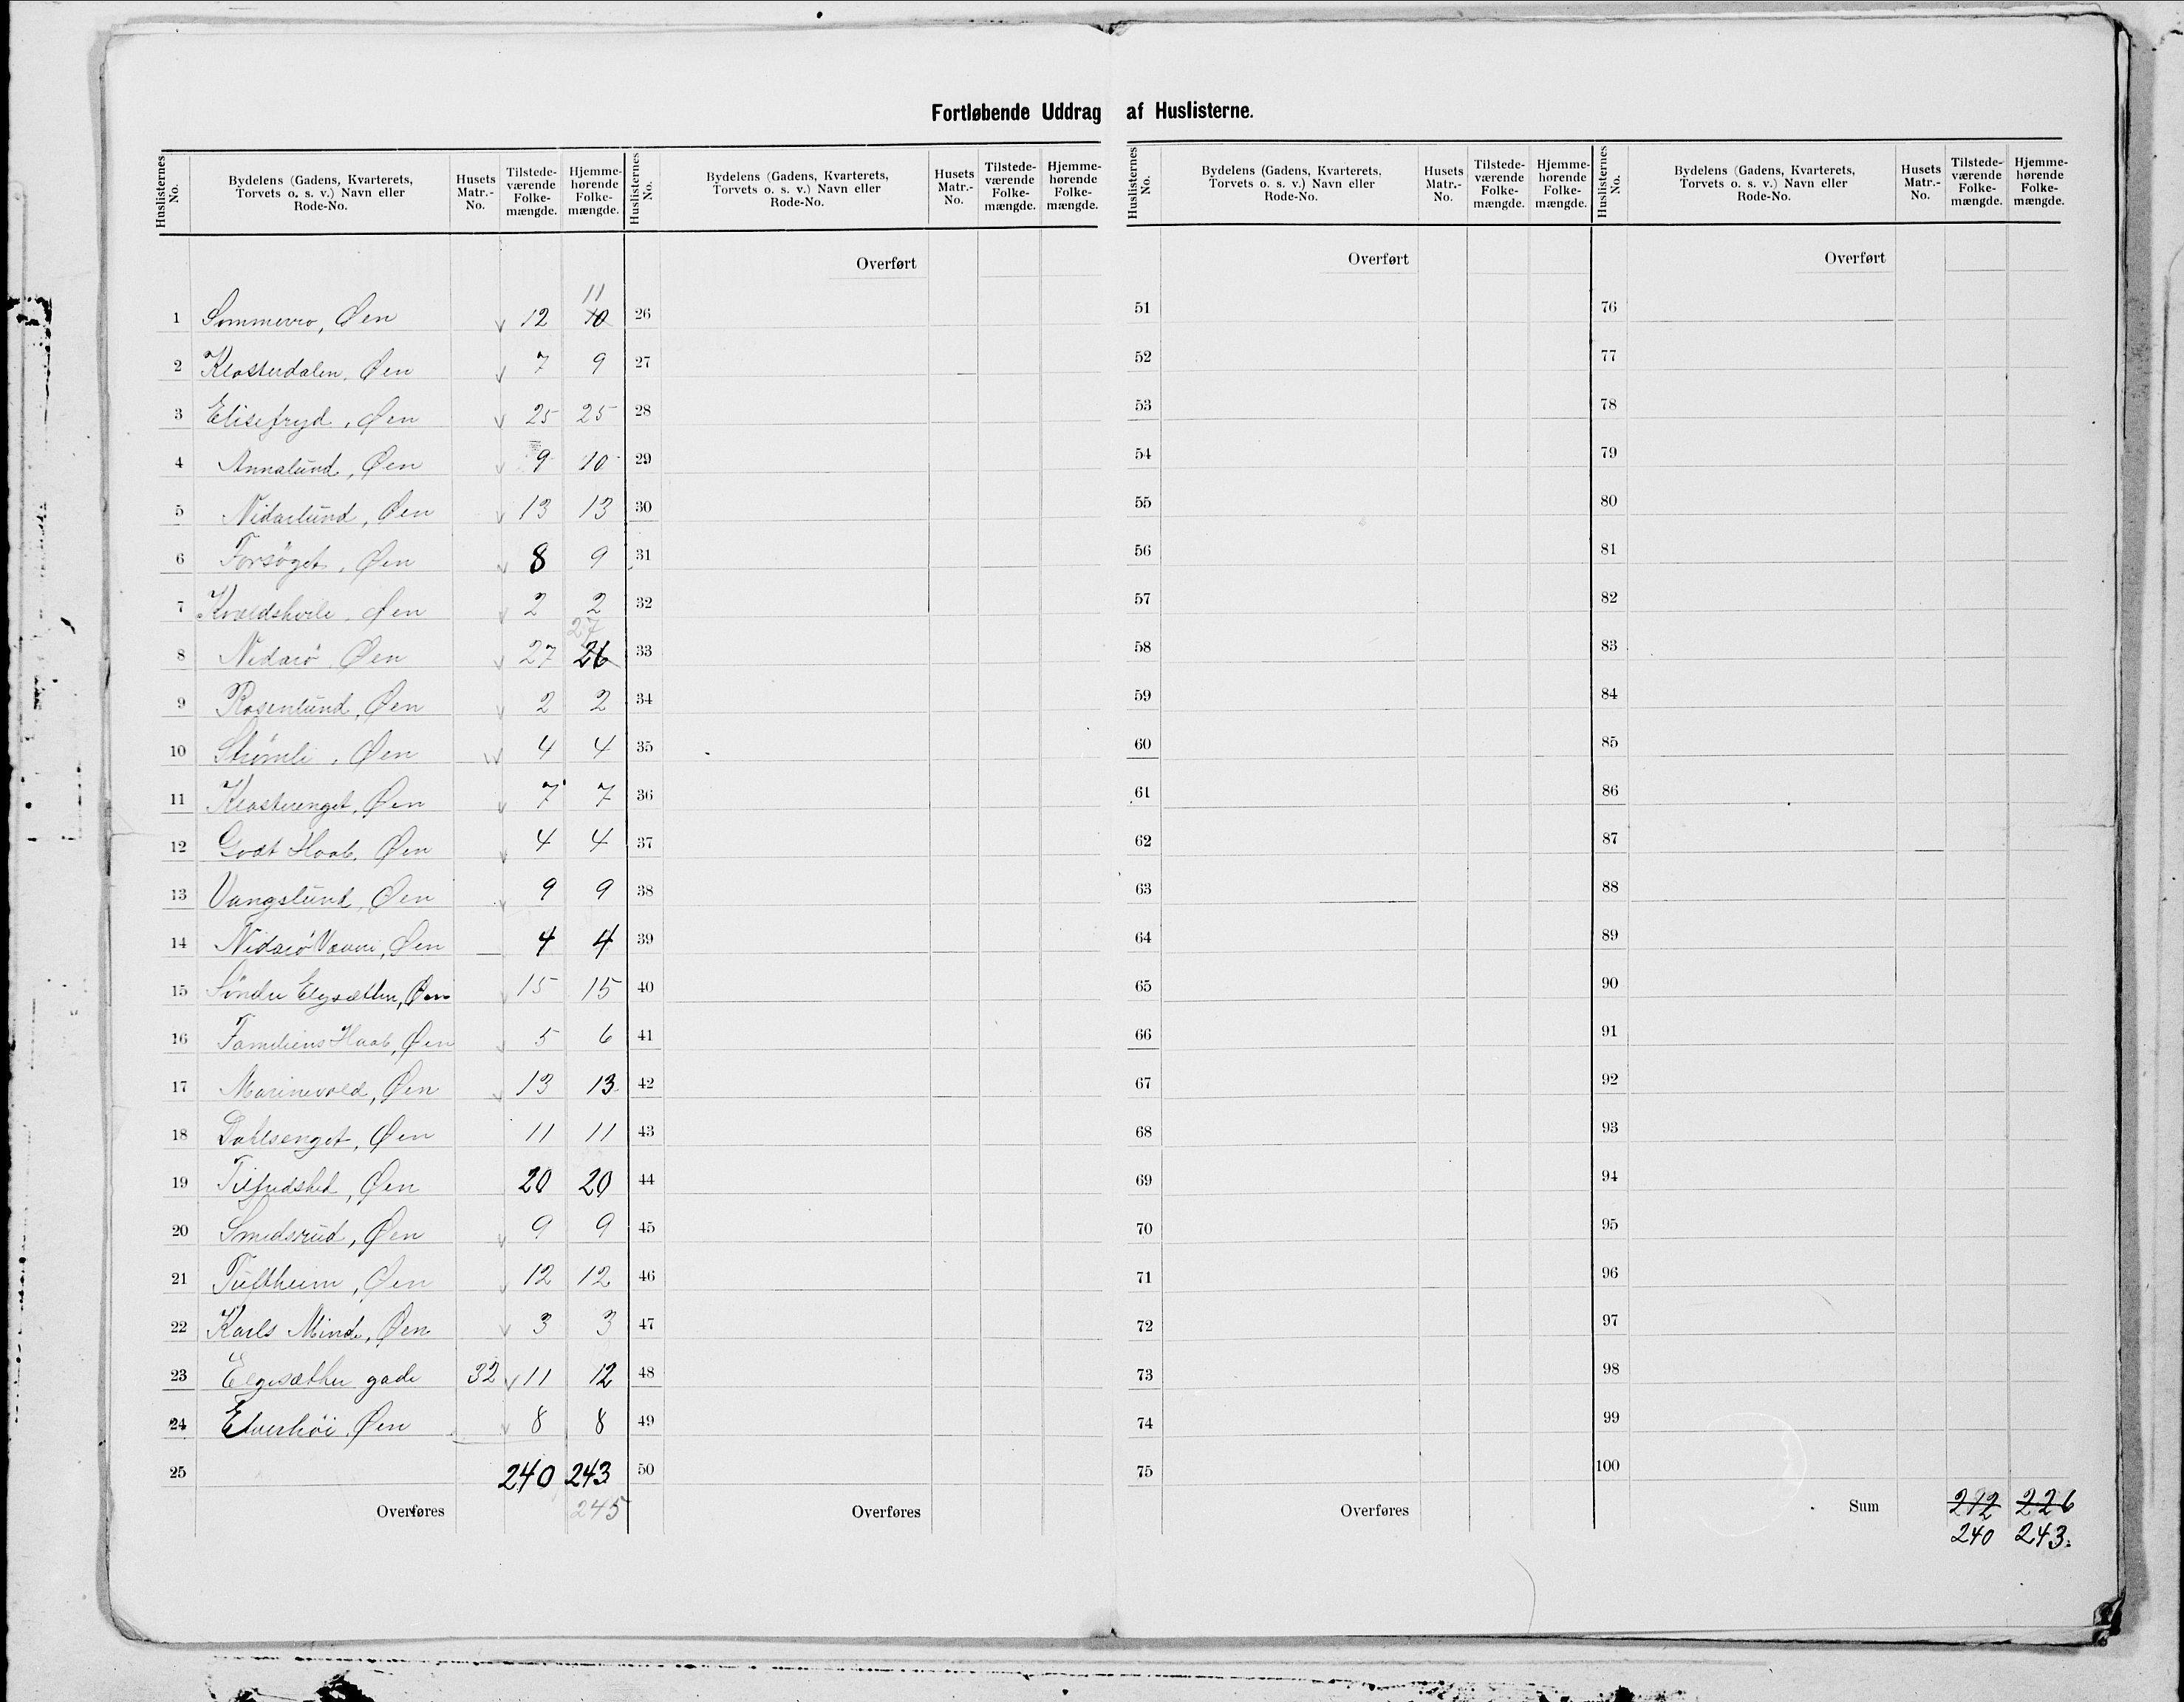 Fortløbende Uddrag af Huslisterne.
Huslisternes No. Bydelens (Gadens, Kvarterets, Torvets o. s. v.) Navn eller Rode-No. Husets Matr.-No. Tilstedeværende Folkemængde. Hjemmehørende Folkemængde.
Huslisternes No. Bydelens (Gadens, Kvarterets, Torvets o. s. v.) Navn eller Rode-No. Husets Matr.-No. Tilstedeværende Folkemængde. Hjemmehørende Folkemængde.
Huslisternes No. Bydelens (Gadens, Kvarterets, Torvets o. s. v.) Navn eller Rode-No. Husets Matr.-No. Tilstedeværende Folkemængde. Hjemmehørende Folkemængde.
Huslisternes No. Bydelens (Gadens, Kvarterets, Torvets o. s. v.) Navn eller Rode-No. Husets Matr.-No. Tilstedeværende Folkemængde. Hjemmehørende Folkemængde.
11
1 Sommerro, Øen 12 10
2 Klosterdalen, Øen 7 9
3 Elisefryd, Øen 25 25
4 Annalund, Øen 9 10
5 Nidarlund, Øen 13 13
6 Forsøget, Øen 8 9
7 Kvældshvile, Øen 2 2
27
8 Nidarö Øen 27 26
9 Rosenlund, Øen 2 2
10 Strömli, Øen 4 4
11 Klosterenget, Øen 7 7
12 Godt Haab, Øen 4 4
13 Vangslund, Øen 9 9
14 Nidarö Øen 4 4
15 Søndre Elgesæther, Øen 15 15
16 Familiens Haab, Øen 5 6
17 Marinevold, Øen 13 13
18 Dahlsenget, Øen 11 11
19 Tilfredshed, Øen 20 20
20 Smedsrud, Øen 9 9
21 Tuftheim, Øen 12 12
22 Karls Minde, Øen 3 3
23 Elgesæther gade 32 11 12
24 Elverhöi, Øen 8 8
25 240 243
Overføres 245
Overført
26
27
28
29
30
31
32
33
34
35
36
37
38
39
40
41
42
43
44
45
46
47
48
49
50
Overføres
Overført
51
52
53
54
55
56
57
58
59
60
61
62
63
64
65
66
67
68
69
70
71
72
73
74
75
Overføres
Overført
76
77
78
79
80
81
82
83
84
85
86
87
88
89
90
91
92
93
94
95
96
97
98
99
100
Sum 212 226
240 243.